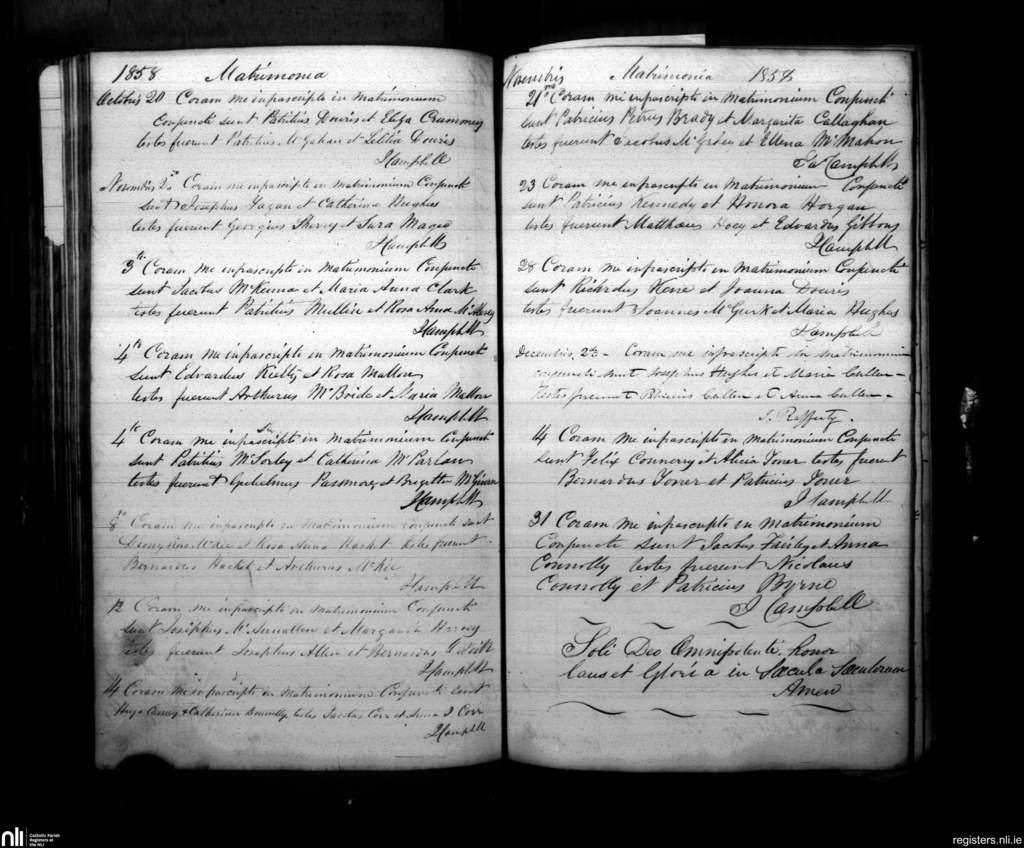 1858 Matrimonia
Octobris 20 Coram me infrascripto in matrimonium
Conjuncti sunt Patritius Douris et Eliza
testes fuerunt Patritius McGahan et Letitia Douris
J Campbell
Novembris 2o Coram me infrascripto in matrimonium Conjuncti
sunt Josephus Fagan et Catherina Hughes
testes fuerunt Georgius Sherry et Sara Magee
J Campbell
3 Coram me infrascripto in matrimonium Conjuncti
sunt Jacobus McKenna et Maria Anna Clark
testes fuerunt Patritius Mullin et Rosa Anna
J Campbell
4th Coram me infrascripto in matrimonium Conjuncti
sunt Edvardus Rielly et Rosa Mallon
testes fuerunt Arthurus McBride et Maria Mallon
J Campbell
4th Coram me infrascripto in matrimonium Conjuncti
sunt Patritius McSorley et Catherina McParlan
testes fuerunt Gulielmus Passmore et Brigetta
J Campbell
8 Coram me infrascripto in matrimonium conjuncti sunt
McKee et Rosa Anna Hacket testes fuerunt
Bernardus Hacket et Arthurus McKee
J Campbell
12 Coram me infrascripto in matrimonium Conjuncti
sunt Josephus et Margarita
testes fuerunt Josephus Allen et Bernardus
J Campbell
14 Coram me infrascripto in matrimonium Conjuncti sunt
Hugo & Catherina Donnelly testes Jacobus Corr et Anna J Corr
J Campbell
Novembris Matrimonia 1858
21 Coram me infrascripto in matrimonium Conjuncti
sunt Patricius Petrus Brady et Margarita Callaghan
testes fuerunt Jacobus et Ellena McMahon
Jas Campbell
23 Coram me infrascripto in matrimonium Conjuncti
sunt Patricius Kennedy et Honora Horgan
testes fuerunt Matthaeus Hoey et Edvardus Gibbons
J Campbell
28 Coram me infrascripto in matrimonium Conjuncti
sunt Richrdus et Joanna Douris
testes fuerunt Joannes McGurk et Maria Hughes
J Campbell
Decembris, 2 - Coram me infrascripto in matrimonium
conjuncti sunt Josephus Hughes et Maria Cullen -
Testes fuerunt Cullen et Anna Cullen -
J. Rafferty.
14 Coram me infrascripto in matrimonium Conjuncti
sunt Felix Connery et Alicia Toner testes fuerunt
Bernardus Toner et Patricius Toner
J Campbell
31 Coram me infrascripto in matrimonium
Conjuncti sunt Jacobus et Anna
Connolly testes fuerunt Nicolaus
Connolly et Patricius Byrne
J Campbell
Soli Deo Omnipotenti honor
laus et Gloria in Saecula Saeculorum
Amen
nli Catholic Parish
Registers at
the NLI
registers.nli.ie